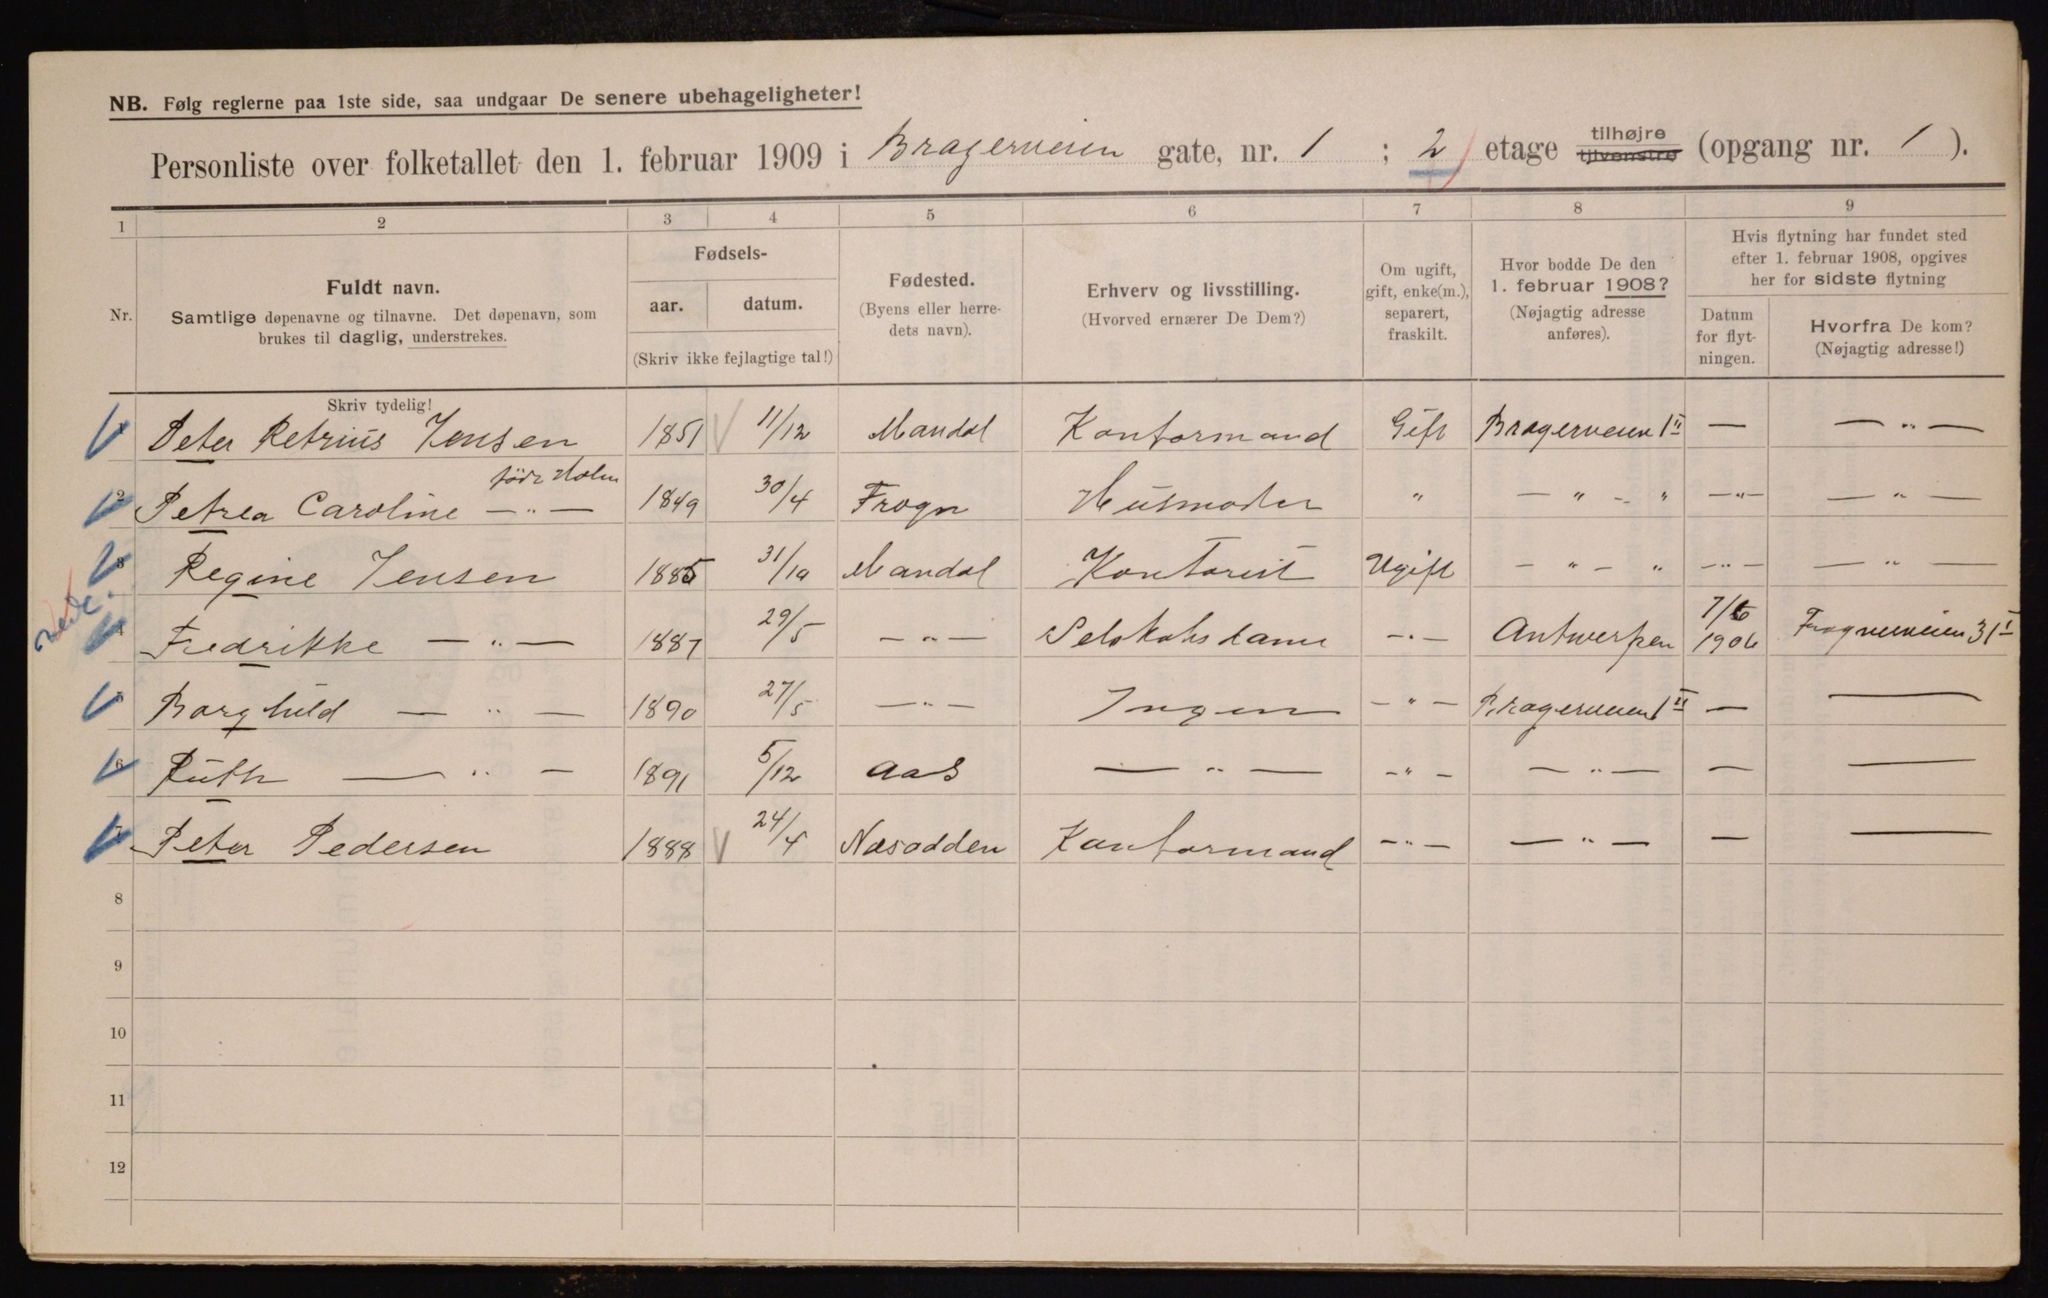 NB. Følg reglerne paa 1ste side, saa undgaar De senere ubehageligheter!
Personliste over folketallet den 1. februar 1909 i Bragerveien gate, nr. 1 ; 2 etage tilhøjre tilvenstre (opgang nr. 1 ).
1 2 3 4 5 6 7 8 9
Nr.
Fuldt navn.
Samtlige døpenavne og tilnavne. Det døpenavn, som
brukes til daglig, understrekes.
Skriv tydelig!
Fødsels-
aar. datum.
(Skriv ikke fejlagtige tal!)
Fødested.
(Byens eller herre-
dets navn).
Erhverv og livsstilling.
(Hvorved ernærer De Dem?)
Om ugift,
gift, enke(m.),
separert,
fraskilt.
Hvor bodde De den
1. februar 1908?
(Nøjagtig adresse
anføres).
Hvis flytning har fundet sted
efter 1. februar 1908, opgives
her for sidste flytning
Datum
for flyt-
ningen.
Hvorfra De kom?
(Nøjagtig adresse!)
1 Peter Petrius Jensen 1851 11/12 Mandal Kontormand Gift Bragerveien 1 II — — " —
født Holm
2 Petrea Caroline — " — 1849 30/4 Frogn Husmoder " — " — " — " — — " —
3 Regine Jensen 1885 31/10 Mandal Kontorist Ugift — " — " — " — — " —
4 Fredrikke — " — 1887 29/5 — " — Selskabsdame — " — Antwerpen 7/6 1906 Frognerveien 31 I
5 Borghild — " — 1890 27/5 — " — Ingen — " — Bragerveien 1 II — —
6 Ruth — " — 1891 5/12 Aas — " — — " — — " — — —
7 Peter Pedersen 1888 24/4 Næsodden Kontormand — " — — " — — —
8
9
10
11
12